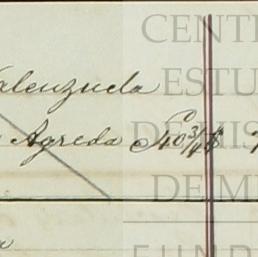 CENT
Valenzuela
ESTU
Agreda $40 3/4
DE HIS
DE M
FUND